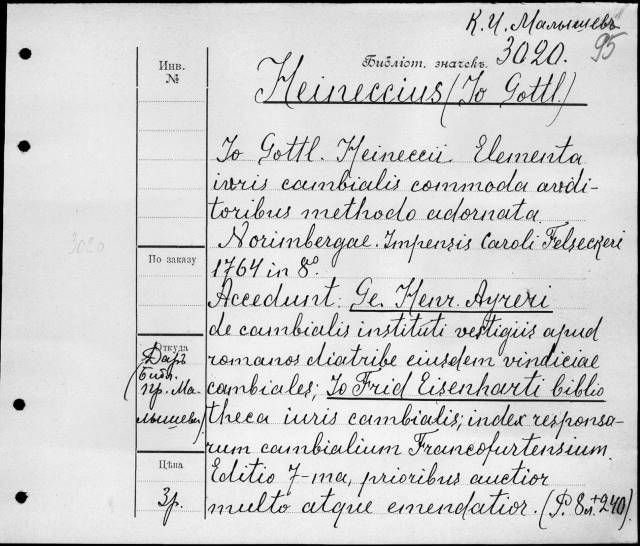 К. И. Малышевъ
95
Инв. №
Библіот. значекъ. 3020.
Heineccius (Io Gottl.)
Io Gottl. Heineccii. Elementa
iuris cambialis commoda audi-
toribus methodo adornata.
Norimbergae. Impensis Caroli Felseckeri
3020
По заказу
1764 in 8º
Accedunt: Ge. Henr. Ayreri
de cambialis instituti vestigiis apud
Откуда
romanos diatribe eiusdem vindiciae
Даръ
(Библ.
пр. Ма-
лышева)
cambiales; Io Frid Eisenharti biblio
theca iuris cambialis; index responso-
rum cambialium Francofurtensium.
Цѣна
Editio 7-ma, prioribus auctior
3р.
multo atque emendatior. (P. 8л.+240)